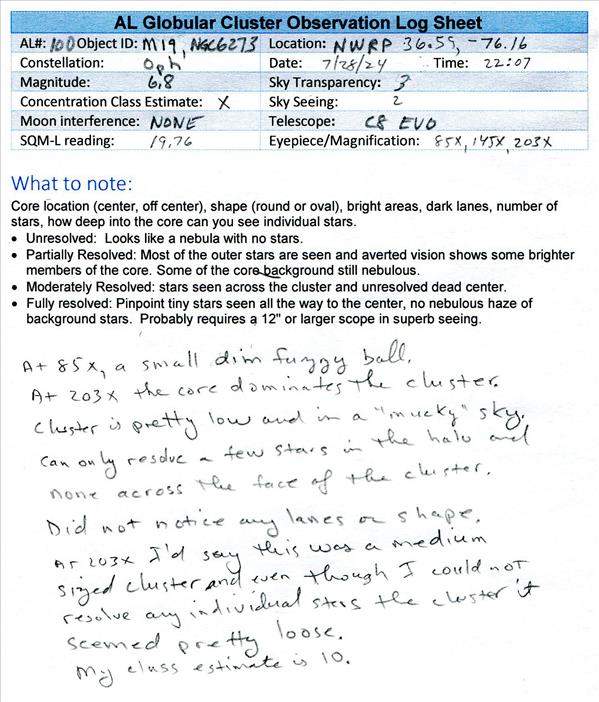 AL Globular Cluster Observation Log Sheet
AL#: 100 Object ID: M19, NGC6273 Location: NWRP 36.55, -76.16
Constellation: Oph Date: 7/28/24 Time: 22:07
Magnitude: 6.8 Sky Transparency: 3
Concentration Class Estimate: X Sky Seeing: 2
Moon interference: NONE Telescope: C8 EVO
SQM-L reading: 19.76 Eyepiece/Magnification: 85X, 145X, 203X
What to note:
Core location (center, off center), shape (round or oval), bright areas, dark lanes, number of
stars, how deep into the core can you see individual stars.
• Unresolved: Looks like a nebula with no stars.
• Partially Resolved: Most of the outer stars are seen and averted vision shows some brighter
members of the core. Some of the core background still nebulous.
• Moderately Resolved: stars seen across the cluster and unresolved dead center.
• Fully resolved: Pinpoint tiny stars seen all the way to the center, no nebulous haze of
background stars. Probably requires a 12" or larger scope in superb seeing.
At 85X, a small dim fuzzy ball.
At 203X the core dominates the cluster.
Cluster is pretty low and in a "mucky" sky.
Can only resolve a few stars in the halo and
none across the face of the cluster.
Did not notice any lanes or shape.
At 203X I'd say this was a medium
sized cluster and even though I could not
resolve any individual stars the cluster it
seemed pretty loose.
My class estimate is 10.